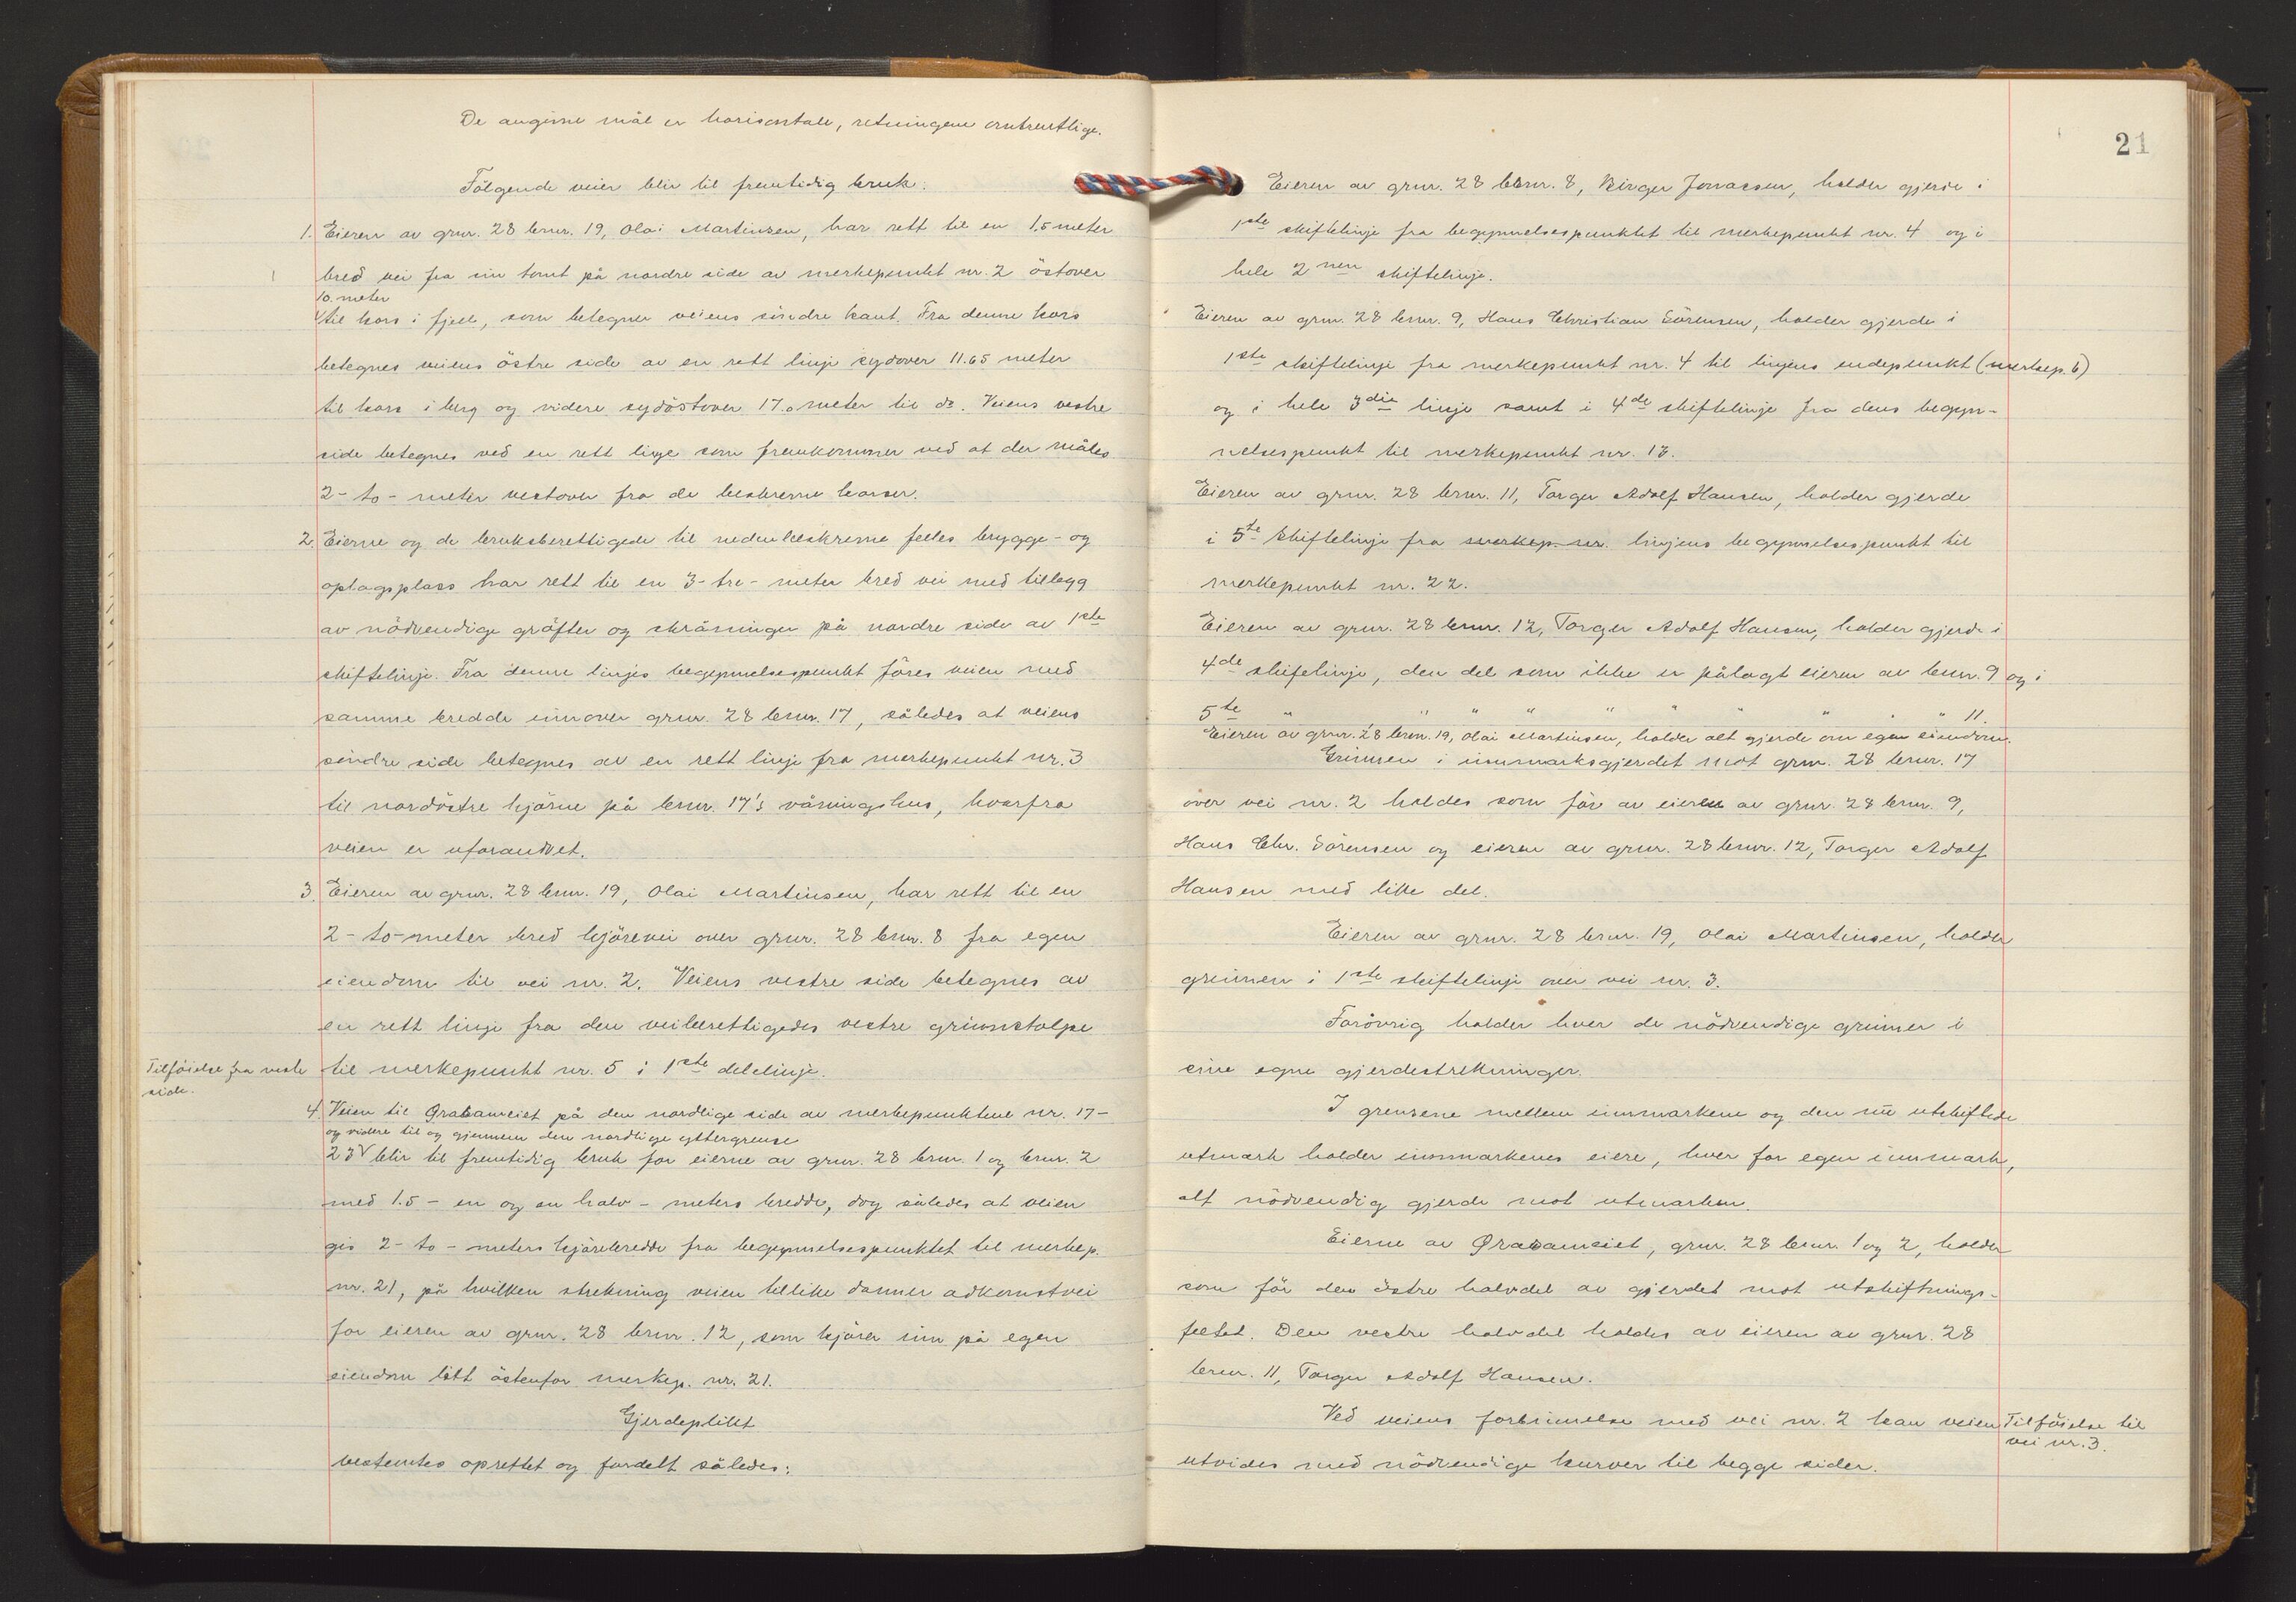 De angivne mål er horisontale, retningene omtrentlige.
Følgende veier blir til fremtidig bruk:
1. Eieren av grnr. 28 brnr. 19, Olai Martinsen, har rett til en 1.5 meter
bred vei fra sin tomt på nordre side av merkepunkt nr. 2 østover
10. meter
til kors i fjell, som betegner veiens søndre kant. Fra denne kors
betegnes veiens østre side av en rett linje sydover 11.65 meter
til kors i berg og videre sydøstover 17.0 meter til do. Veiens vestre
side betegnes ved en rett linje som fremkommer ved at der måles
2 - to - meter vestover fra de beskrevne korser.
2. Eierne og de bruksberettigede til nedenbeskrevne felles brygge- og
oplagsplass har rett til en 3 - tre - meter bred vei med tillegg
av nødvendige grøfter og skråninger på nordre side av 1ste
skiftelinje. Fra denne linjes begynnelsespunkt føres veien med
samme bredde innover grnr. 28 brnr. 17, således at veiens
søndre side betegnes av en rett linje fra merkepunkt nr. 3
til nordøstre hjørne på brnr. 17's våningshus, hvorfra
veien er uforandret.
3. Eieren av grnr. 28 brnr. 19, Olai Martinsen, har rett til en
2 - to - meter bred kjørevei over grnr. 28 brnr. 8 fra egen
eiendom til vei nr. 2. Veiens vestre side betegnes av
en rett linje fra den veiberettigedes vestre grinnstolpe
Tilføielse fra neste
side.
til merkepunkt nr. 5 i 1ste delelinje.
4. Veien til Grasameiet på den nordlige side av merkepunktene nr. 17 -
og videre til og gjennem den nordlige yttergrense
23 V blir til fremtidig bruk for eierne av grnr. 28 brnr. 1 og brnr. 2
med 1.5 - en og en halv - meters bredde, dog således at veien
gis 2 - to - meters kjørebredde fra begynnelsespunktet til merkep.
nr. 21, på hvilken strekning veien tillike danner adkomstvei
for eieren av grnr. 28 brnr. 12, som kjører inn på egen
eiendom litt østenfor merkep. nr. 21.
Gjerdeplikt
bestemtes oprettet og fordelt således:
21
Eieren av grnr. 28 brnr. 8, Birger Jonassen, holder gjerde i
1ste skiftelinje fra begynnelsespunktet til merkepunkt nr. 4 og i
hele 2nen skiftelinje.
Eieren av grnr. 28 brnr. 9, Hans Christian Sörensen, holder gjerde i
1ste skiftelinje fra merkepunkt nr. 4 til linjens endepunkt (merkep. 6)
og i hele 3die linje samt i 4de skiftelinje fra dens begyn-
nelsespunkt til merkepunkt nr. 18.
Eieren av grnr. 28 brnr. 11, Torger Adolf Hansen, holder gjerde
i 5te skiftelinje fra merkep. nr. linjens begynnelsespunkt til
merkepunkt nr. 22.
Eieren av grnr. 28 brnr. 12, Torger Adolf Hansen, holder gjerde i
4de skifelinje, den del som ikke er pålagt eieren av brnr. 9 og i
5te " " " " " " " " " " 11.
Eieren av grnr. 28 brnr. 19, Olai Martinsen, holder alt gjerde om egen eiendom.
Grinnen i innmarksgjerdet mot grnr. 28 brnr. 17
over vei nr. 2 holdes som før av eieren av grnr. 28 brnr. 9,
Hans Chr. Sörensen og eieren av grnr. 28 brnr. 12, Torger Adolf
Hansen med like del.
Eieren av grnr. 28 brnr. 19, Olai Martinsen, holder
grinnen i 1ste skiftelinje over vei nr. 3.
Forøvrig holder hver de nødvendige grinner i
sine egne gjerdestrekninger.
I grensene mellem innmarkene og den nu utskiftede
utmark holder innmarkenes eiere, hver for egen innmark,
alt nødvendig gjerde mot utmarken.
Eierne av Grasameiet, grnr. 28 brnr. 1 og 2, holder
som før den østre halvdel av gjerdet mot utskiftnings-
feltet. Den vestre halvdel holdes av eieren av grnr. 28
brnr. 11, Torger Adolf Hansen.
Ved veiens forbinnelse med vei nr. 2 kan veien
Tilføielse til
vei nr. 3.
utvides med nødvendige kurver til begge sider.